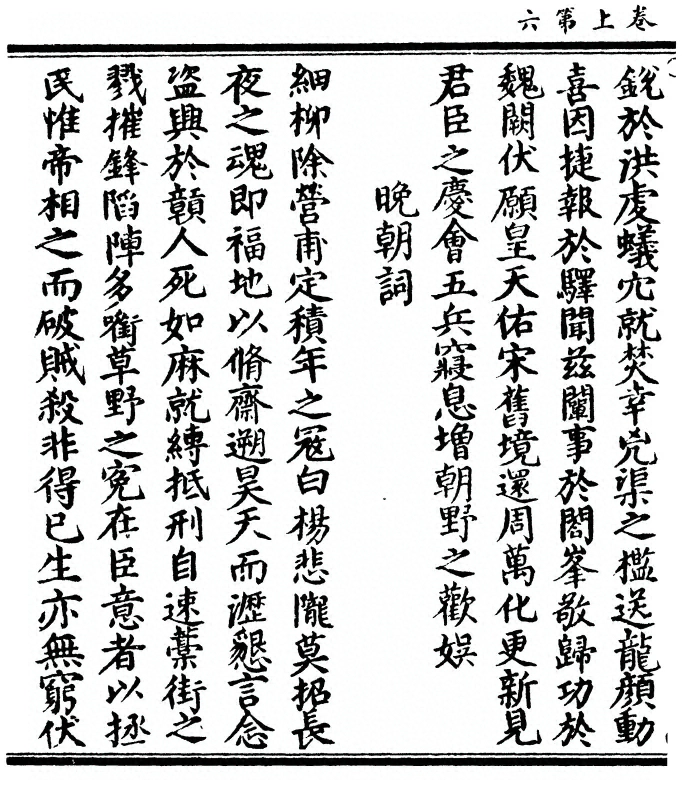 卷上第六
銳於洪虔蟻穴就焚幸兇渠之檻送龍顏動
喜因捷報於驛聞茲闡事於閤峯敬歸功於
魏闕伏願皇天佑宋舊境還周萬化更新見
君臣之慶會五兵寢息增朝野之歡娛
晚朝詞
細柳除營甫定積年之冦白楊悲隴莫招長
夜之魂即福地以脩齋遡昊天而瀝懇言念
盗興於贛人死如麻就縛抵刑自速藁街之
戮摧鋒陷陣多銜草野之寃在臣意者以拯
民惟帝相之而破賊殺非得已生亦無窮伏